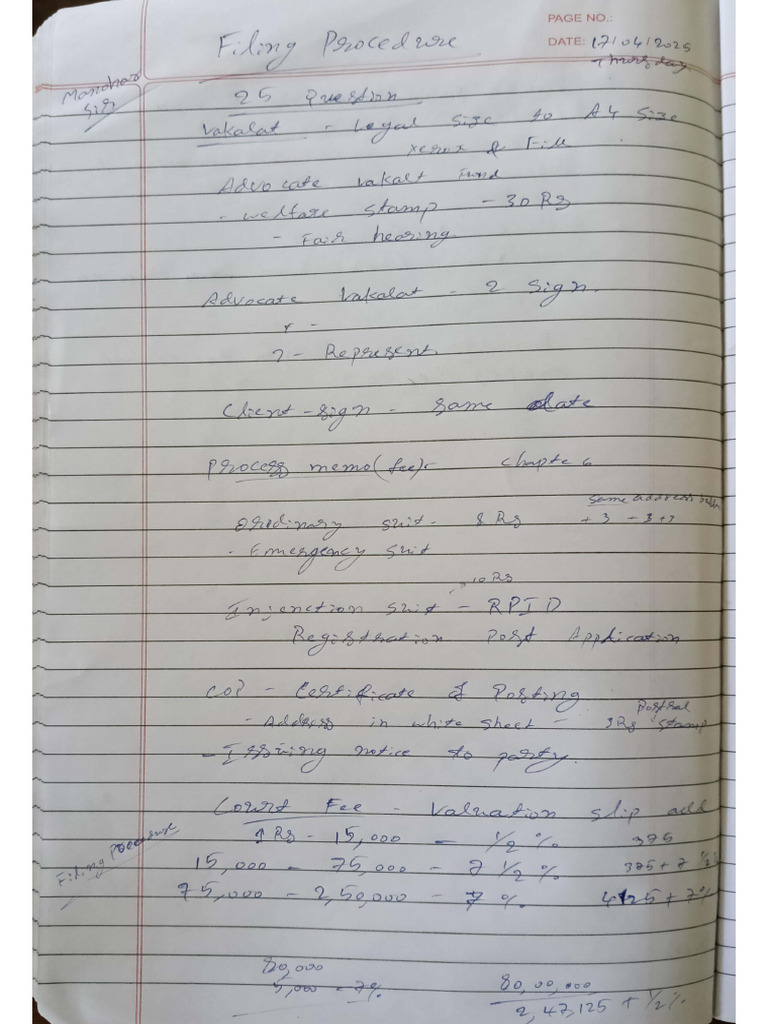 PAGE NO.:
DATE: 17/04/2025
Thursday
Filing Procedure
Manohar
Sir
25 Question
Vakalat - Legal Size to A4 Size
xerox & Fill
Advocate Vakalt Fund
- welfare stamp - 30 Rs
- Fair hearing.
Advocate Vakalat - 2 sign.
- Represent
Client - sign - same date
Process memo (fee)- Chapte 6
same address
Ordinary suit - 8 Rs +3 - 3+3
- Emergency suit
10 Rs
Injenction suit - RPID
Registration Post Application
COP - Certificate of Posting
Postal
- Address in white sheet - 3Rs stamp
- Issuing notice to party.
Court Fee - Valuation slip add
1 Rs - 15,000 - 1/2 % 375
Filing Procedure
15,000 - 75,000 - 7 1/2 % 375 + 7 1/2
75,000 - 2,50,000 - 7 % 4125 + 7%
80,000
5,000 - 7% 80,00,000
2,47,125 + 1/2 %